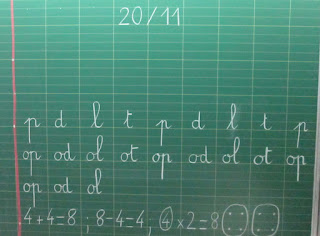 20/11
p d l t p d l t p
op od ol ot op od ol ot op
op od ol
4+4=8 ; 8-4=4, 4×2=8